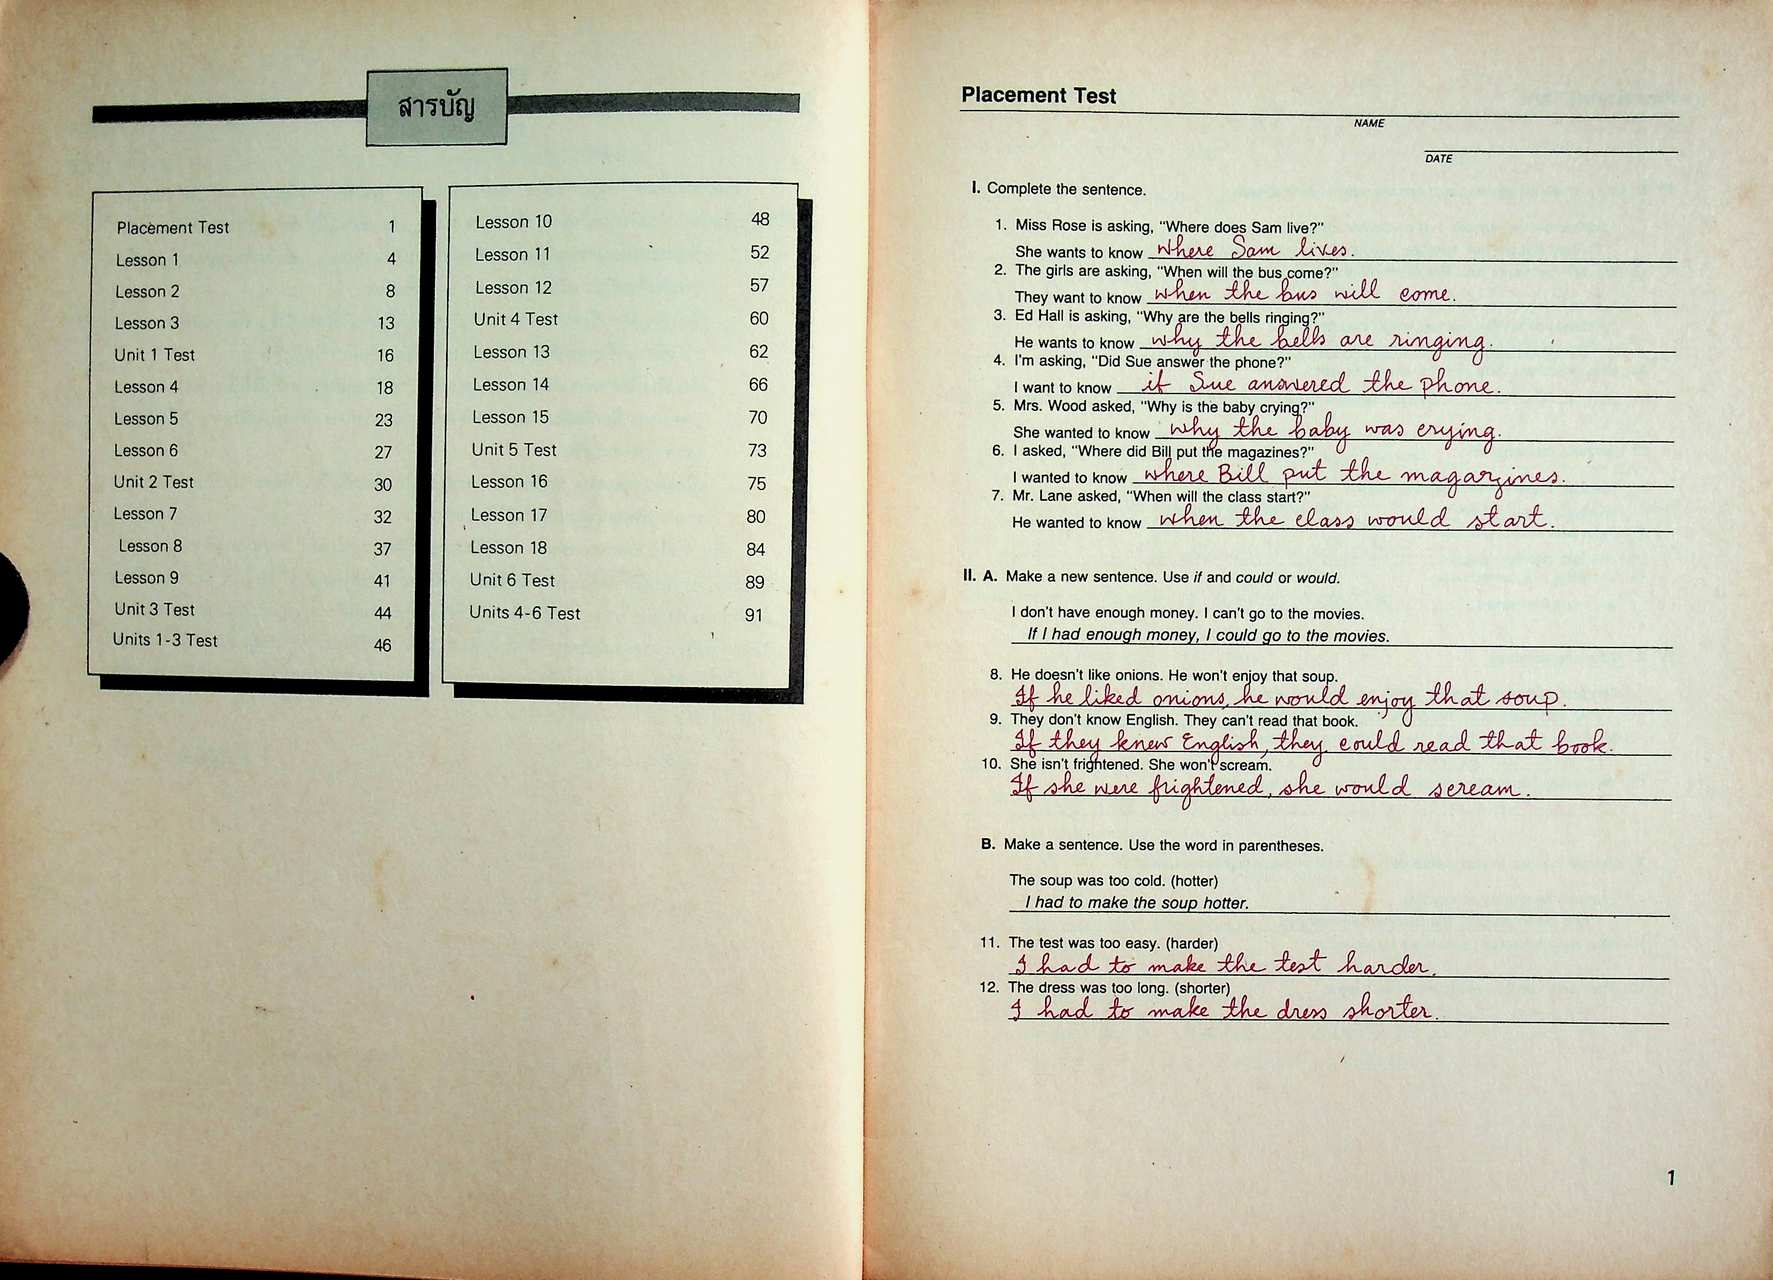 สารบัญ
Placement Test 1
Lesson 1 4
Lesson 2 8
Lesson 3 13
Unit 1 Test 16
Lesson 4 18
Lesson 5 23
Lesson 6 27
Unit 2 Test 30
Lesson 7 32
Lesson 8 37
Lesson 9 41
Unit 3 Test 44
Units 1-3 Test 46
Lesson 10 48
Lesson 11 52
Lesson 12 57
Unit 4 Test 60
Lesson 13 62
Lesson 14 66
Lesson 15 70
Unit 5 Test 73
Lesson 16 75
Lesson 17 80
Lesson 18 84
Unit 6 Test 89
Units 4-6 Test 91
Placement Test
NAME
DATE
I. Complete the sentence.
1. Miss Rose is asking, "Where does Sam live?"
She wants to know where Sam lives.
2. The girls are asking, "When will the bus come?"
They want to know when the bus will come.
3. Ed Hall is asking, "Why are the bells ringing?"
He wants to know why the bells are ringing.
4. I'm asking, "Did Sue answer the phone?"
I want to know if Sue answered the phone.
5. Mrs. Wood asked, "Why is the baby crying?"
She wanted to know why the baby was crying.
6. I asked, "Where did Bill put the magazines?"
I wanted to know where Bill put the magarzines.
7. Mr. Lane asked, "When will the class start?"
He wanted to know when the class would start.
II. A. Make a new sentence. Use if and could or would.
I don't have enough money. I can't go to the movies.
If I had enough money, I could go to the movies.
8. He doesn't like onions. He won't enjoy that soup.
If he liked onions, he would enjoy that soup.
9. They don't know English. They can't read that book.
If they knew English, they could read that book.
10. She isn't frightened. She won't scream.
If she were frightened, she would scream.
B. Make a sentence. Use the word in parentheses.
The soup was too cold. (hotter)
I had to make the soup hotter.
11. The test was too easy. (harder)
I had to make the test harder.
12. The dress was too long. (shorter)
I had to make the dress shorter.
1